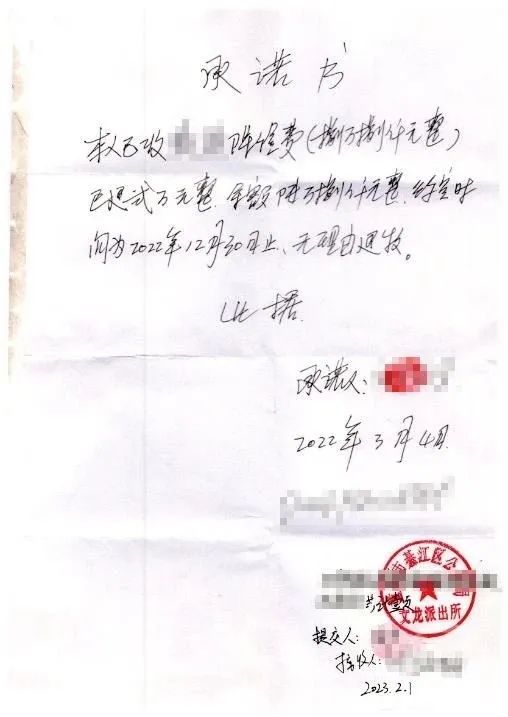 承诺书
本人已收 费(捌万捌仟元整)
已退弍万元整.余额陆万捌仟元整.约定时
间为2022年12月30日止、无理由退款。
此据
承诺人:
2022年3月4日
市綦江区公
文龙派出所
提交人:
接收人:
2023.2.1